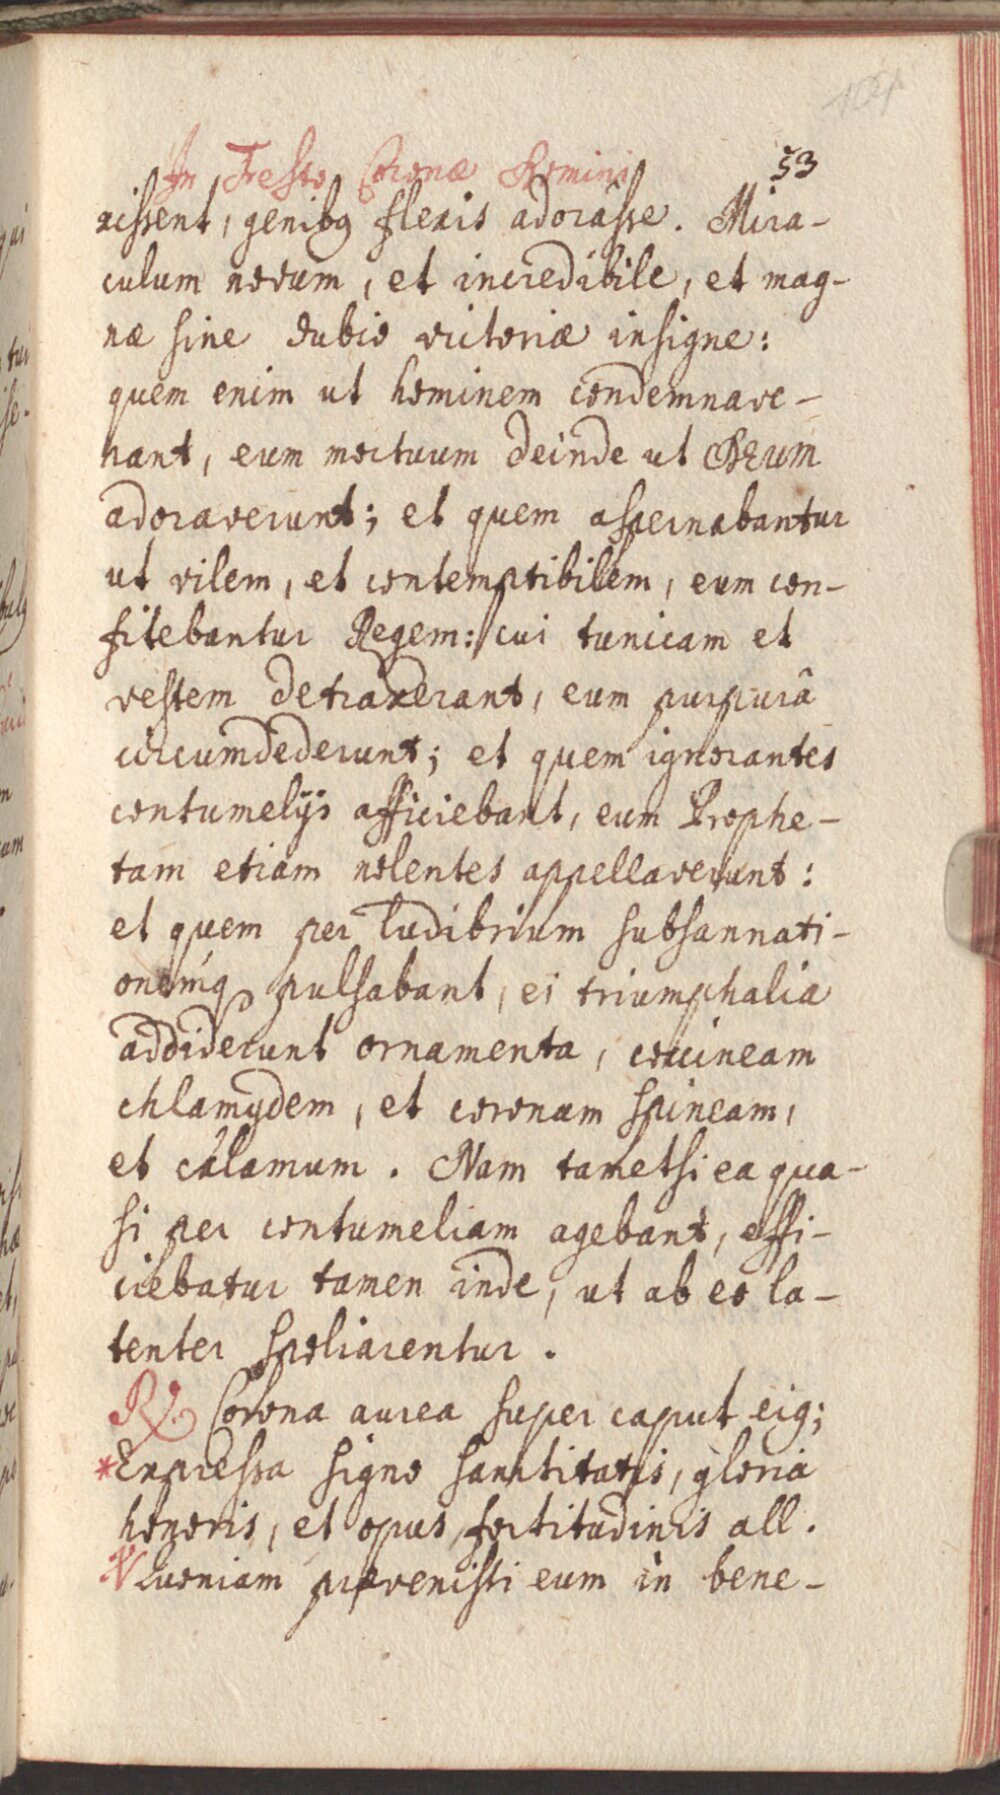 In Festo Coronæ Domini 53
xissent, genibꝰ flexis adorâsse. Mira-
culum novum, et incredibile, et mag-
næ sine dubio victoriæ insigne:
quem enim ut hominem condemnave-
rant, eum mortuum deinde ut DEUM
adoraverunt; et quem aspernabantur
ut vilem, et contemptibilem, eum con-
fitebantur Regem: cui tunicam et
vestem detraxerant, eum purpurâ
circumdederunt; et quem ignorantes
contumelijs afficiebant, eum Prophe-
tam etiam nolentes appellaverunt:
et quem per ludibrium subsannati-
onemq́ pulsabant, ei triumphalia
addiderunt ornamenta, coccineam
chlamydem, et coronam spineam,
et calamum. Nam tametsi ea qua-
si per contumeliam agebant, effi-
ciebatur tamen inde, ut ab eo la-
tenter spoliarentur.
℟. Corona aurea super caput eiꝰ;
*Expressa signo sanctitatis, gloria
honoris, et opus fortitudinis all.
℣ Quoniam prævenisti eum in bene-